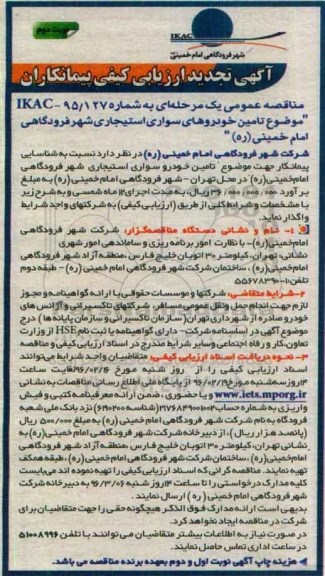 نوبت دوم
IKAC
شهر فرودگاهی امام خمینی (ره)
آگهی تجدید ارزیابی کیفی پیمانکاران
مناقصه عمومی یک مرحله‌ای به شماره IKAC - ۹۵/۱۲۷
"موضوع تامین خودروهای سواری استیجاری شهر فرودگاهی
امام خمینی (ره) "
شرکت شهر فرودگاهی امام خمینی (ره) در نظر دارد نسبت به شناسایی
پیمانکار جهت موضوع تامین خودرو سواری استیجاری شهر فرودگاهی
امام خمینی (ره) در محل تهران - شهر فرودگاهی امام خمینی (ره) به مبلغ
بر آورد ۳۶/۰۰۰/۰۰۰/۰۰۰ ریال، به مدت اجرای ۱۲ ماه شمسی و به شرح زیر
با مشخصات و شرایط کلی از طریق (ارزیابی کیفی) به شرکتهای واجد شرایط
واگذار نماید.
۱- نام و نشانی دستگاه مناقصه‌گزار: شرکت شهر فرودگاهی
امام خمینی (ره) - با نظارت امور برنامه ریزی و ساماندهی امور شهری
نشانی: تهران، کیلومتر ۳۰ اتوبان خلیج فارس، منطقه آزاد شهر فرودگاهی
امام خمینی (ره)، ساختمان شرکت شهر فرودگاهی امام خمینی (ره) - طبقه دوم
تلفن:
۲- شرایط متقاضی: شرکتها و موسسات حقوقی با ارائه گواهینامه و مجوز
لازم جهت اقدام حمل و نقل عمومی مسافر، شرکتهای تاکسیرانی و آژانس های
خودرو صادره از شهرداری تهران (سازمان تاکسیرانی و سازمان پایانه‌ها) درج
موضوع آگهی در اساسنامه شرکت - دارای گواهینامه یا ثبت نام HSE از وزارت
تعاون، کار و رفاه اجتماعی و سایر شرایط مندرج در اسناد ارزیابی کیفی و مناقصه
۳- نحوه دریافت اسناد ارزیابی کیفی: متقاضیان واجد شرایط می‌توانند
اسناد ارزیابی کیفی را از روز شنبه مورخ ۹۶/۰۲/۱۶ لغایت ساعت
۱۴ روز سه‌شنبه مورخ ۹۶/۰۲/۱۹ از پایگاه ملی اطلاع رسانی مناقصات به نشانی
www.iets.mporg.ir و یا حضوری، ضمن ارائه معرفینامه کتبی و فیش
واریزی به شماره حساب (شناسه ) نزد بانک ملی شعبه
فرودگاه به نام شرکت شهر فرودگاهی امام خمینی (ره) به مبلغ ۵۰۰/۰۰۰ ریال
(پانصد هزار ریال)، از دبیرخانه شرکت شهر فرودگاهی امام خمینی (ره) به
نشانی تهران، کیلومتر ۳۰ اتوبان خلیج فارس، منطقه آزاد شهر فرودگاهی
امام خمینی (ره)، ساختمان شرکت شهر فرودگاهی امام خمینی (ره)، طبقه همکف
تهیه نمایند. مناقصه گرانی که اسناد ارزیابی کیفی را تهیه نموده اند می‌بایست
کلیه مدارک درخواستی را تا ساعت ۱۴ روز شنبه ۹۶/۳/۰۶ به دبیرخانه شرکت
شهر فرودگاهی امام خمینی (ره) ارسال نمایند.
بدیهی است ارائه مدارک فوق الذکر هیچگونه حقی را جهت متقاضیان برای
شرکت در مناقصه ایجاد نخواهد کرد.
در صورت نیاز به اطلاعات بیشتر متقاضیان می توانند با تلفن ۵۱۰۰۸۹۹۶
در ساعت اداری تماس حاصل نمایند.
هزینه چاپ آگهی نوبت اول و دوم بعهده برنده مناقصه می باشد.